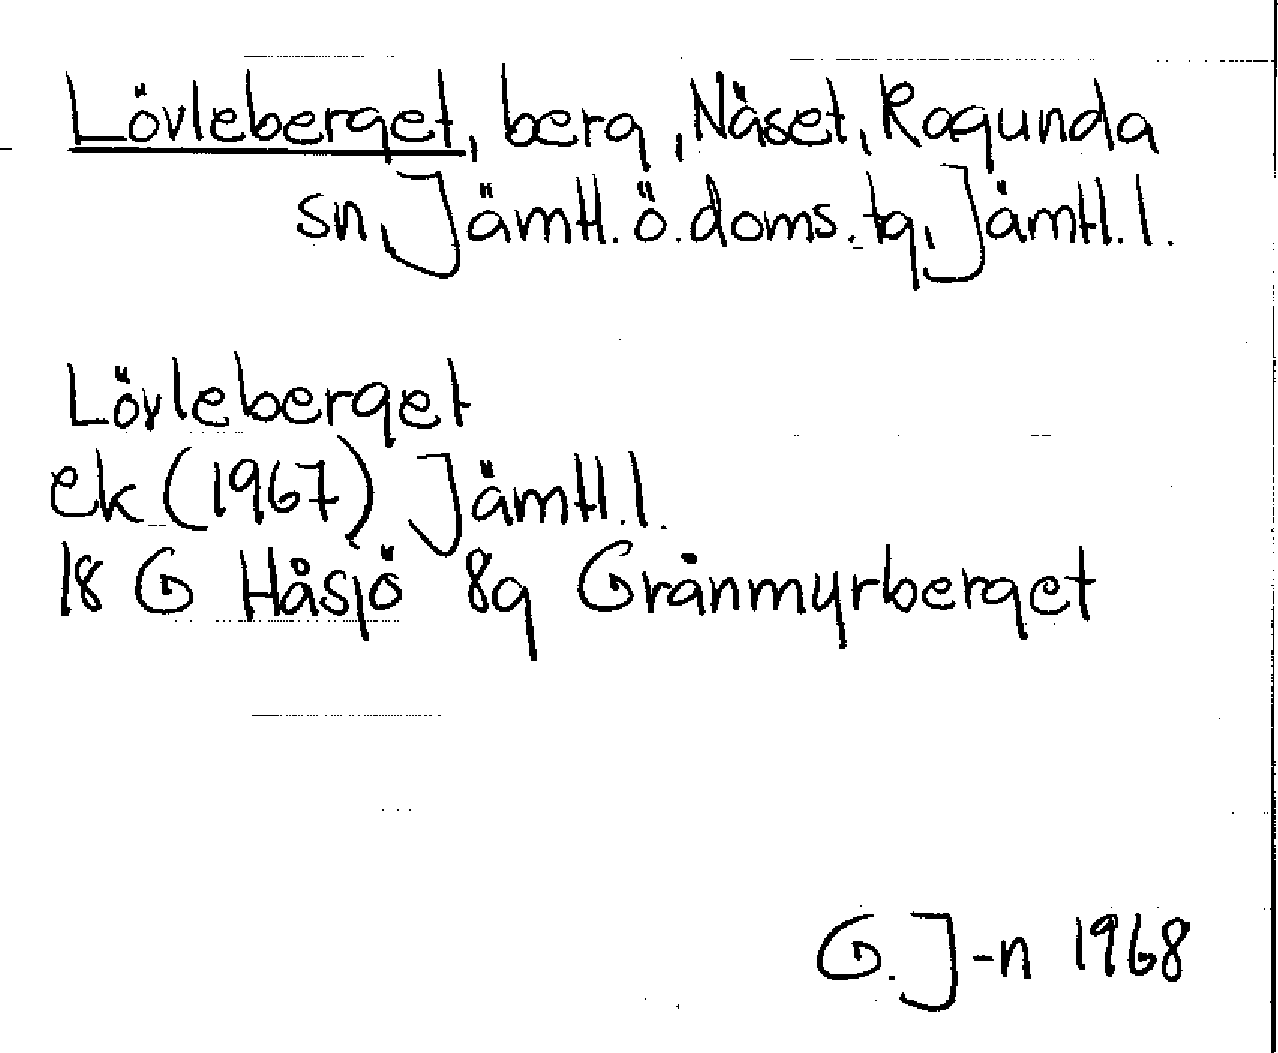 Lövleberget, berg, Näset, Ragunda
sn, Jämtl. ö. doms. tg, Jämtl. l.
Lövleberget
ek (1967) Jämtl. l.
18 G Håsjö 8g Grånmyrberget
G. J-n 1968